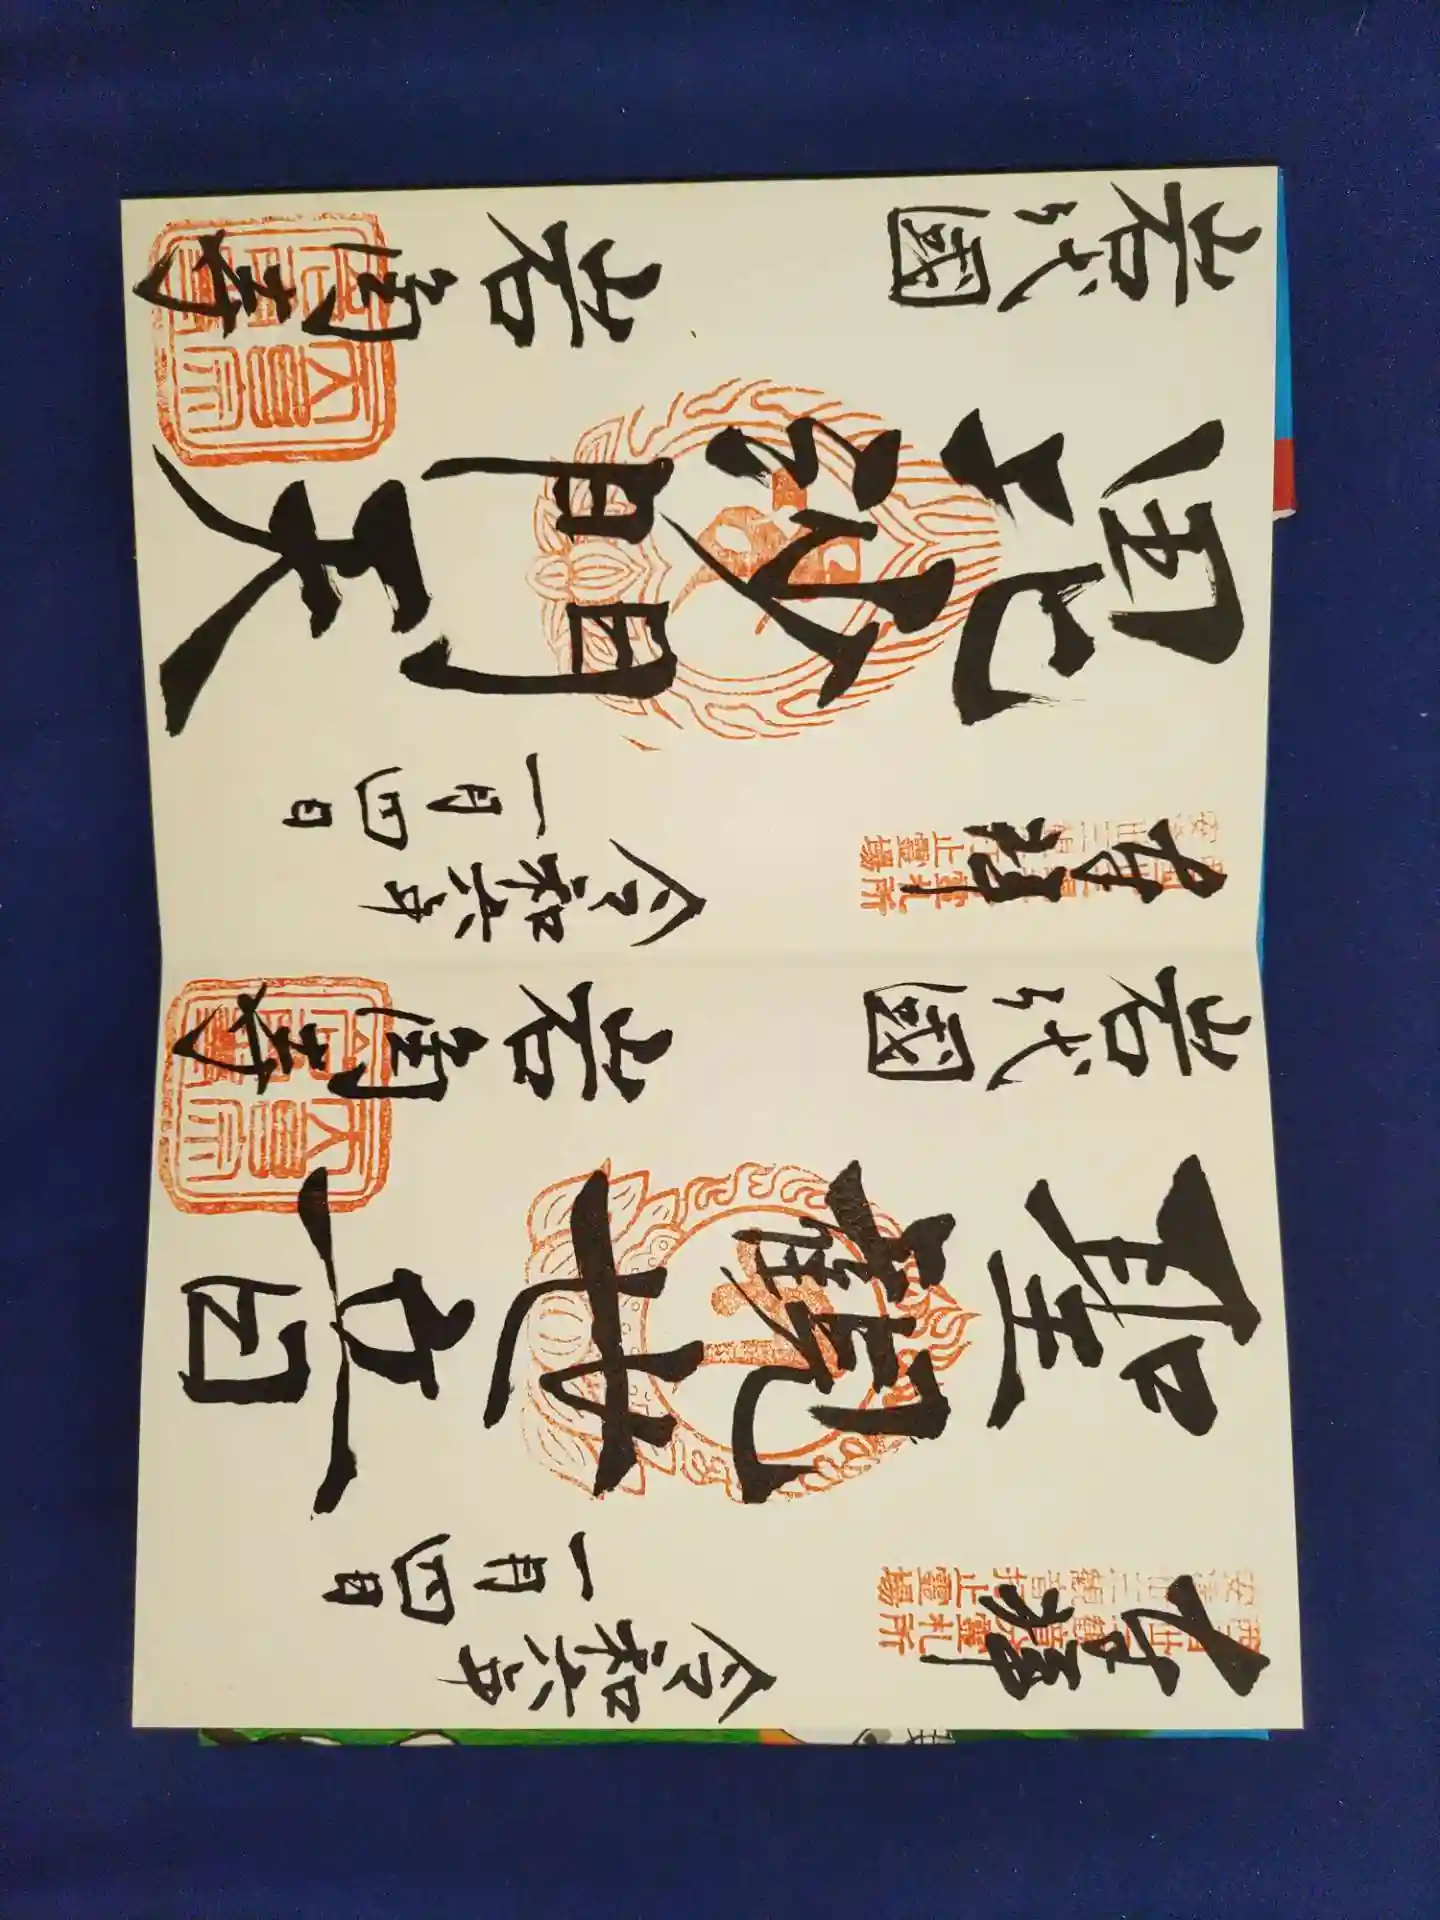 奉拝
安達卅三観音打止霊場
令和六年
一月四日
聖観世音
岩代國
岩角寺
奉拝
安達卅三観音打止霊場
令和六年
一月四日
毘沙門天
岩代國
岩角寺